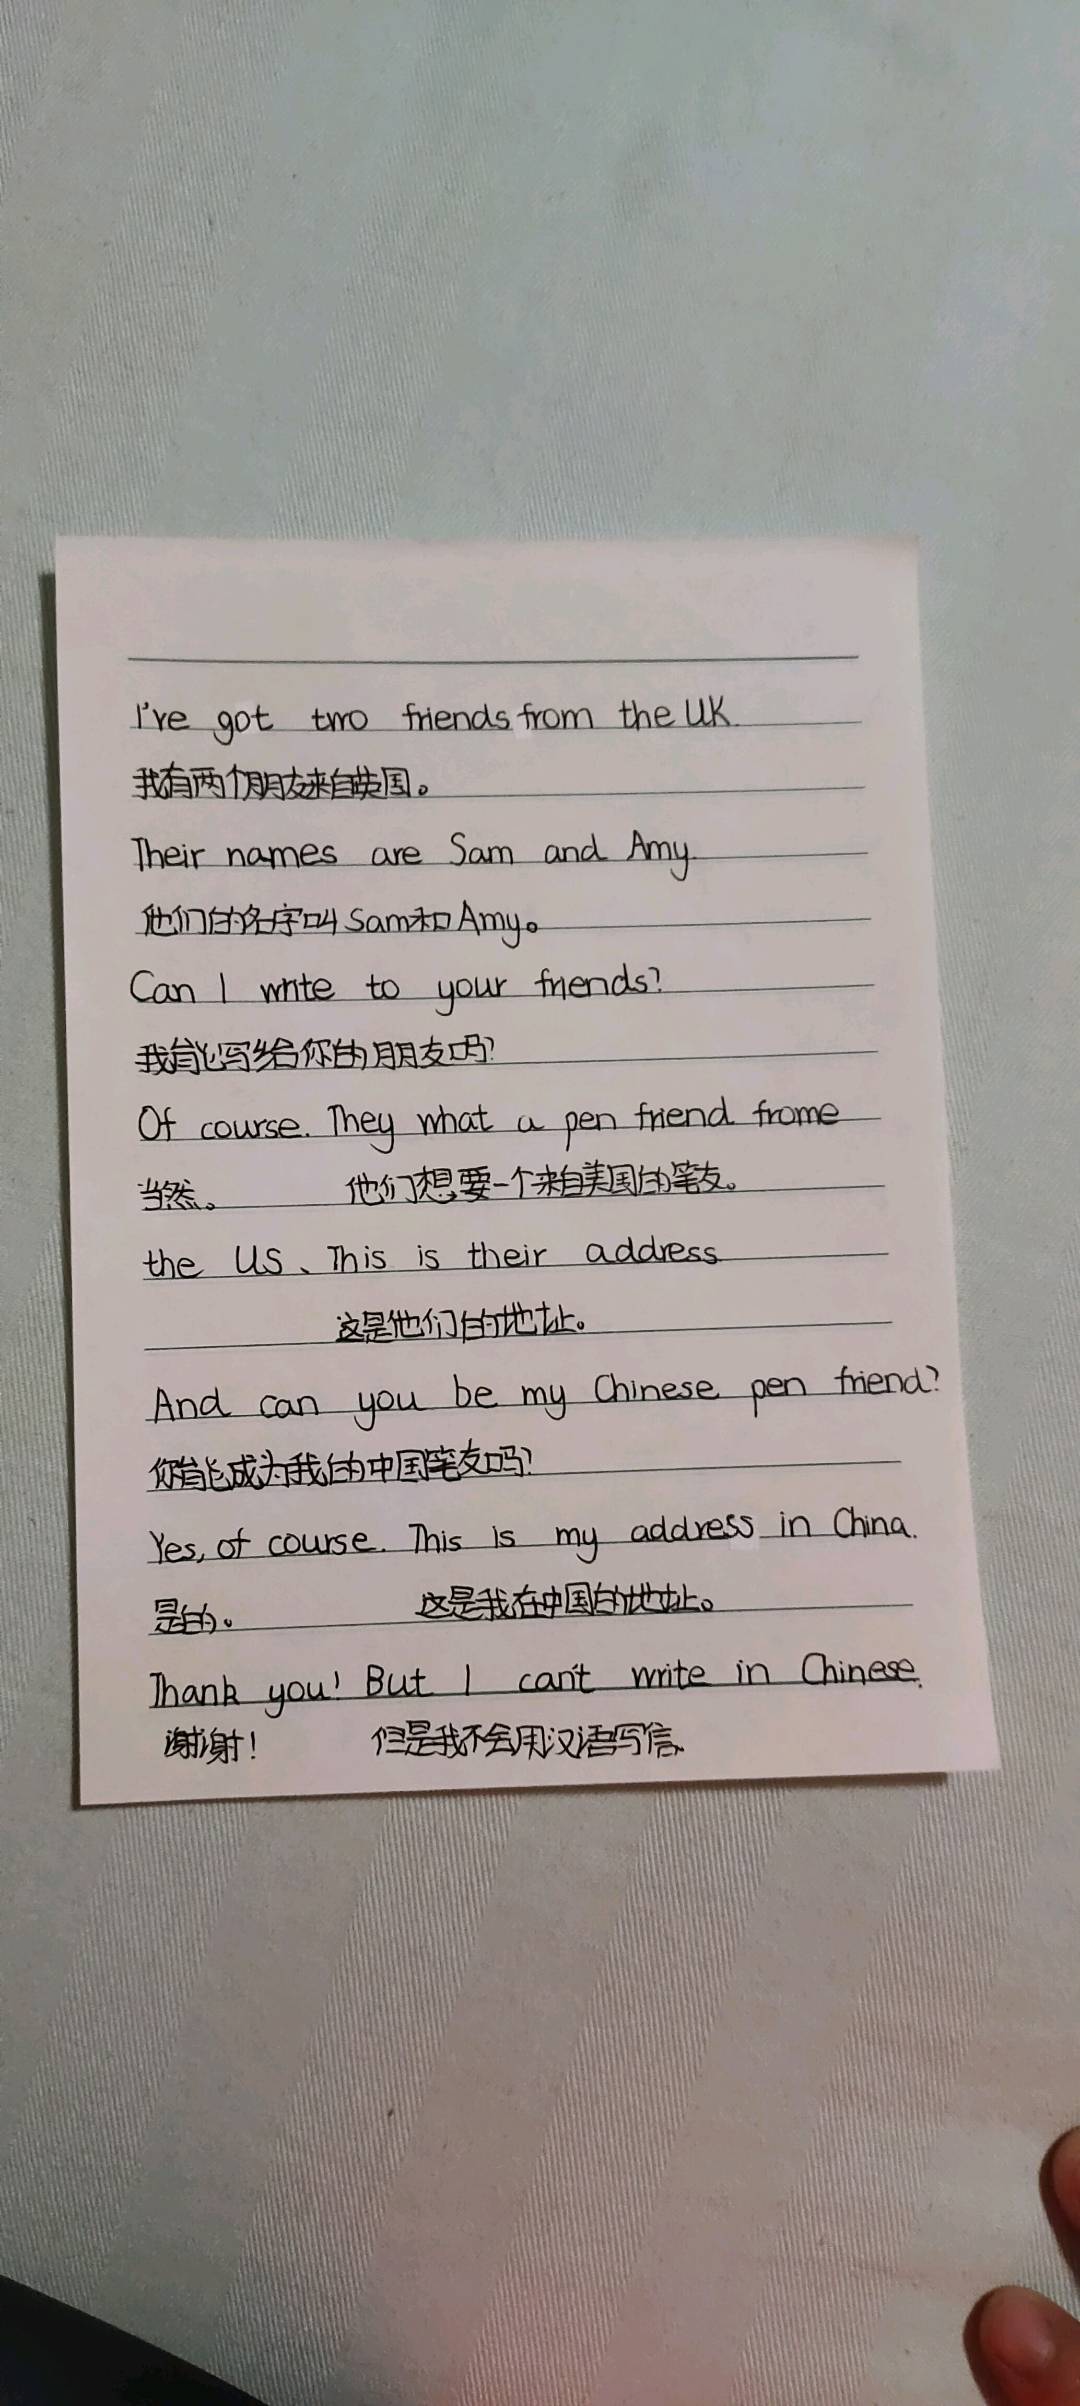 I've got two friends from the UK.
我有两个朋友来自英国。
Their names are Sam and Amy.
他们的名字叫Sam和Amy。
Can I write to your friends?
我能写给你的朋友吗?
Of course. They what a pen friend frome
当然。 他们想要一个来自美国的笔友。
the US、This is their address
这是他们的地址。
And can you be my Chinese pen friend?
你能成为我的中国笔友吗?
Yes, of course. This is my address in China.
是的。 这是我在中国的地址。
Thank you! But I can't write in Chinese.
谢谢! 但是我不会用汉语写信、